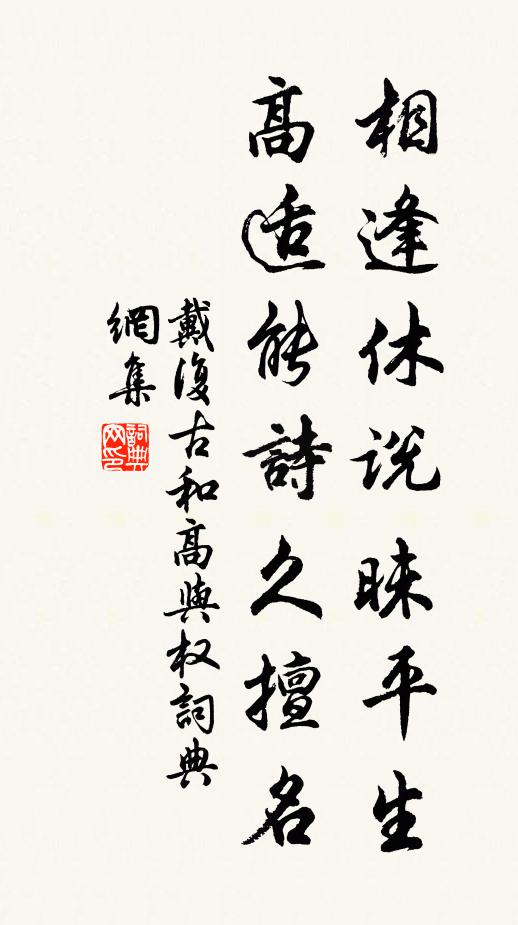 相逢休說昧平生
高适能詩久擅名
戴復古和高與权詞典
網集
詞典
网印